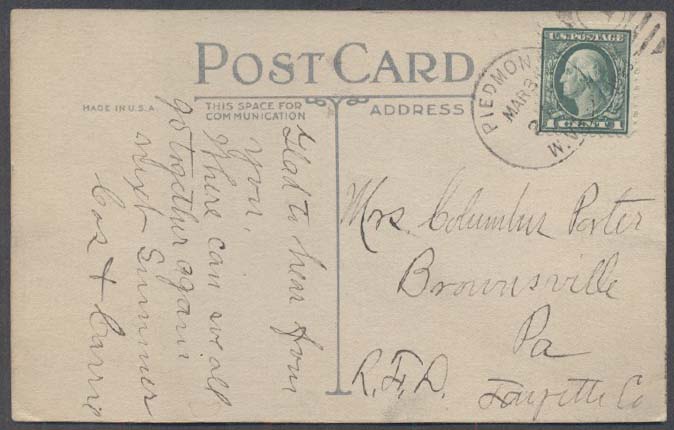 POST CARD
MADE IN U.S.A
THIS SPACE FOR
COMMUNICATION
ADDRESS
U.S. POSTAGE
1 CENT 1
PIEDMON
MAR
W.V
Glad to hear from
you.
Where can we all
go together again
next Summer
& Carrie
Mrs. Columbus Porter
Brownsville
Pa
R.F.D.
Fayette Co